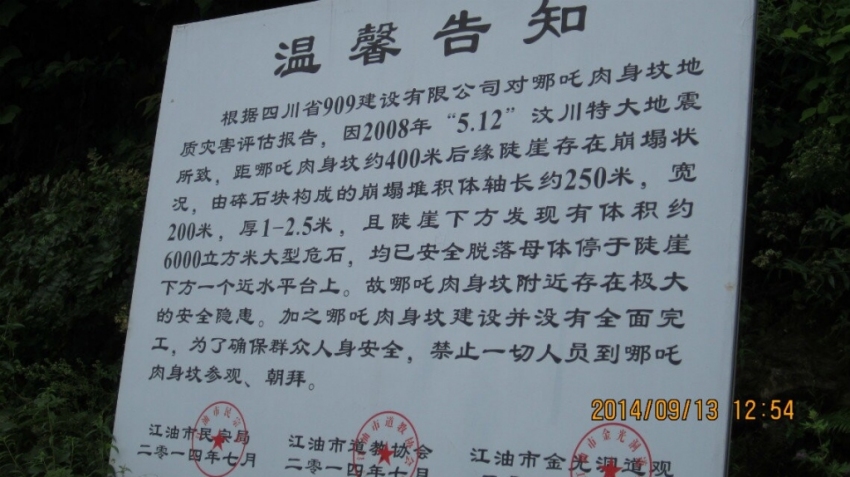 温馨告知
根据四川省909建设有限公司对哪吒肉身坟地
质灾害评估报告，因2008年“5.12”汶川特大地震
所致，距哪吒肉身坟约400米后缘陡崖存在崩塌状
况，由碎石块构成的崩塌堆积体轴长约250米，宽
200米，厚1-2.5米，且陡崖下方发现有体积约
6000立方米大型危石，均已安全脱落母体停于陡崖
下方一个近水平台上。故哪吒肉身坟附近存在极大
的安全隐患。加之哪吒肉身坟建设并没有全面完
工，为了确保群众人身安全，禁止一切人员到哪吒
肉身坟参观、朝拜。
江油市民宗局
二〇一四年七月
江油市道教协会
二〇一四年七月
江油市金光洞道观
2014/09/13 12:54